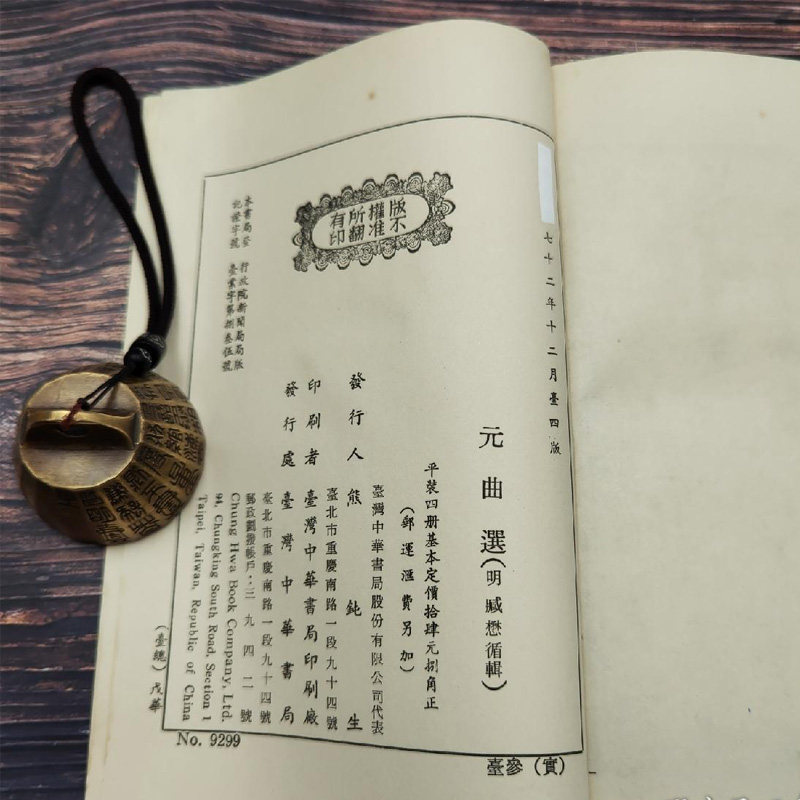 七十二年十二月臺四版
元曲選(明臧懋循輯)
平裝四册基本定價拾肆元捌角正
(郵運滙費另加)
發行人 熊鈍生
臺灣中華書局股份有限公司代表
臺北市重慶南路一段九十四號
印刷者 臺灣中華書局印刷廠
發行處 臺灣中華書局
臺北市重慶南路一段九十四號
郵政劃撥帳戶：三九四二號
Chung Hwa Book Company, Ltd.
94, Chungking South Road, Section 1
Taipei, Taiwan, Republic of China
版權所有
不准翻印
本書局登記證字號
行政院新聞局局版臺業字第捌叁伍號
(臺總)戊華
No. 9299
臺參(實)